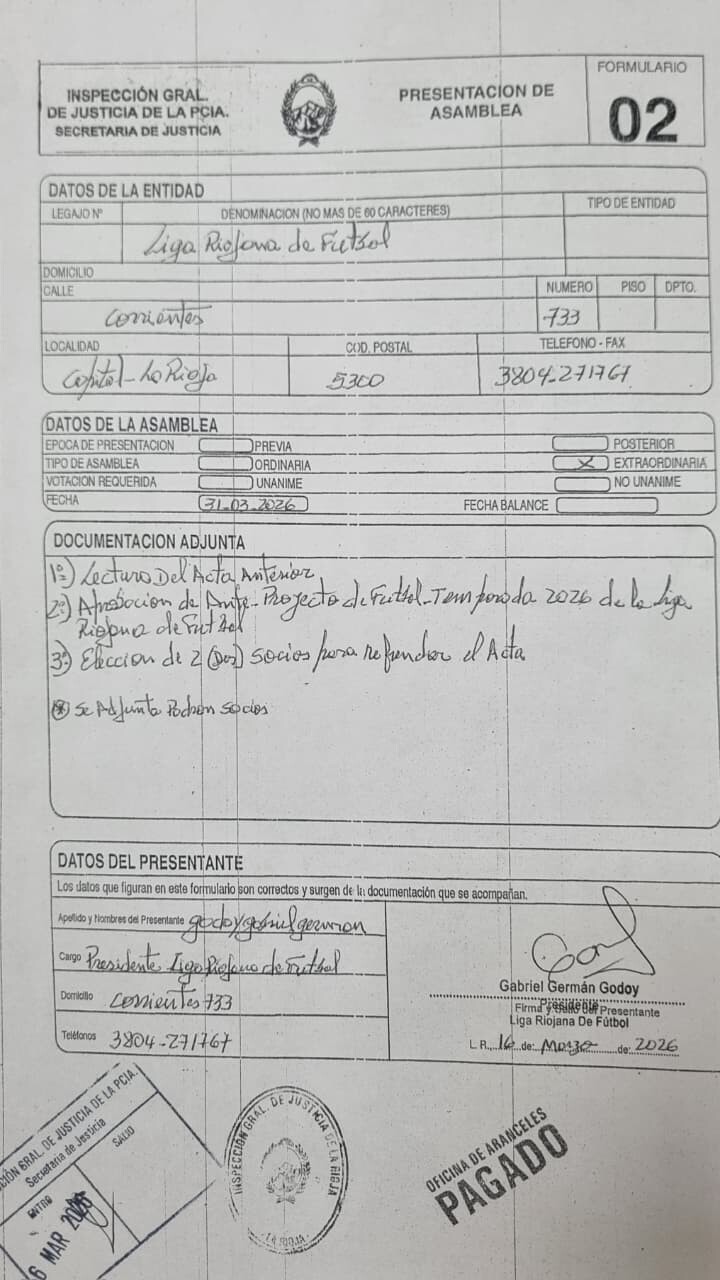 INSPECCIÓN GRAL.
DE JUSTICIA DE LA PCIA.
SECRETARIA DE JUSTICIA
PRESENTACION DE
ASAMBLEA
FORMULARIO
02
DATOS DE LA ENTIDAD
LEGAJO Nº DENOMINACION (NO MAS DE 60 CARACTERES) TIPO DE ENTIDAD
Liga Riojana de Futbol
DOMICILIO
CALLE NUMERO PISO DPTO.
Corrientes 733
LOCALIDAD COD. POSTAL TELEFONO - FAX
Capital - La Rioja 5300 3804-271767
DATOS DE LA ASAMBLEA
EPOCA DE PRESENTACION PREVIA POSTERIOR
TIPO DE ASAMBLEA ORDINARIA X EXTRAORDINARIA
VOTACION REQUERIDA UNANIME NO UNANIME
FECHA 31-03-2026 FECHA BALANCE
DOCUMENTACION ADJUNTA
1º) Lectura Del Acta Anterior
2º) Aprobacion de Ante-Proyecto de Futbol - Temporada 2026 de la Liga
Riojana de Futbol
3º) Eleccion de 2 (Dos) Socios para refrendar el Acta
Se Adjunta Padron Socios
DATOS DEL PRESENTANTE
Los datos que figuran en este formulario son correctos y surgen de la documentación que se acompañan.
Apellido y Nombres del Presentante godoy gabriel german
Cargo Presidente Liga Riojana de Futbol
Domicilio Corrientes 733
Teléfonos 3804-271767
Gabriel Germán Godoy
Presidente
Firma y Sello del Presentante
Liga Riojana De Fútbol
L.R., 16 de: Marzo de: 2026
CIÓN GRAL. DE JUSTICIA DE LA PCIA.
Secretaria de Justicia
ENTRO SALIO
6 MAR 2026
INSPECCIÓN GRAL. DE JUSTICIA DE LA RIOJA
LA RIOJA
OFICINA DE ARANCELES
PAGADO